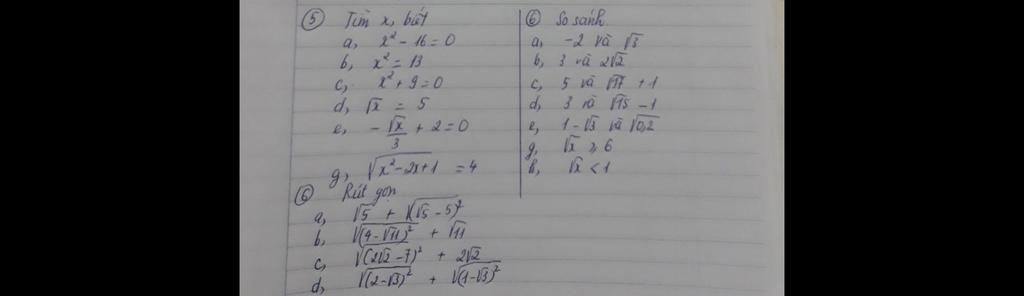 ⑤ Tìm x, biết
a, x² - 16 = 0
b, x² = 13
c, x² + 9 = 0
d, √x = 5
e, -√x/3 + 2 = 0
g, √(x² - 2x + 1) = 4
⑥ So sánh
a, -2 và √3
b, 3 và 2√2
c, 5 và √17 + 1
d, 3 và √15 - 1
e, 1 - √3 và √0,2
g, √x ≥ 6
h, √x < 1
⑥ Rút gọn
a, √5 + √(√5 - 5)²
b, √(4 - √11)² + √11
c, √(2√2 - 7)² + 2√2
d, √(2 - √3)² + √(1 - √3)²